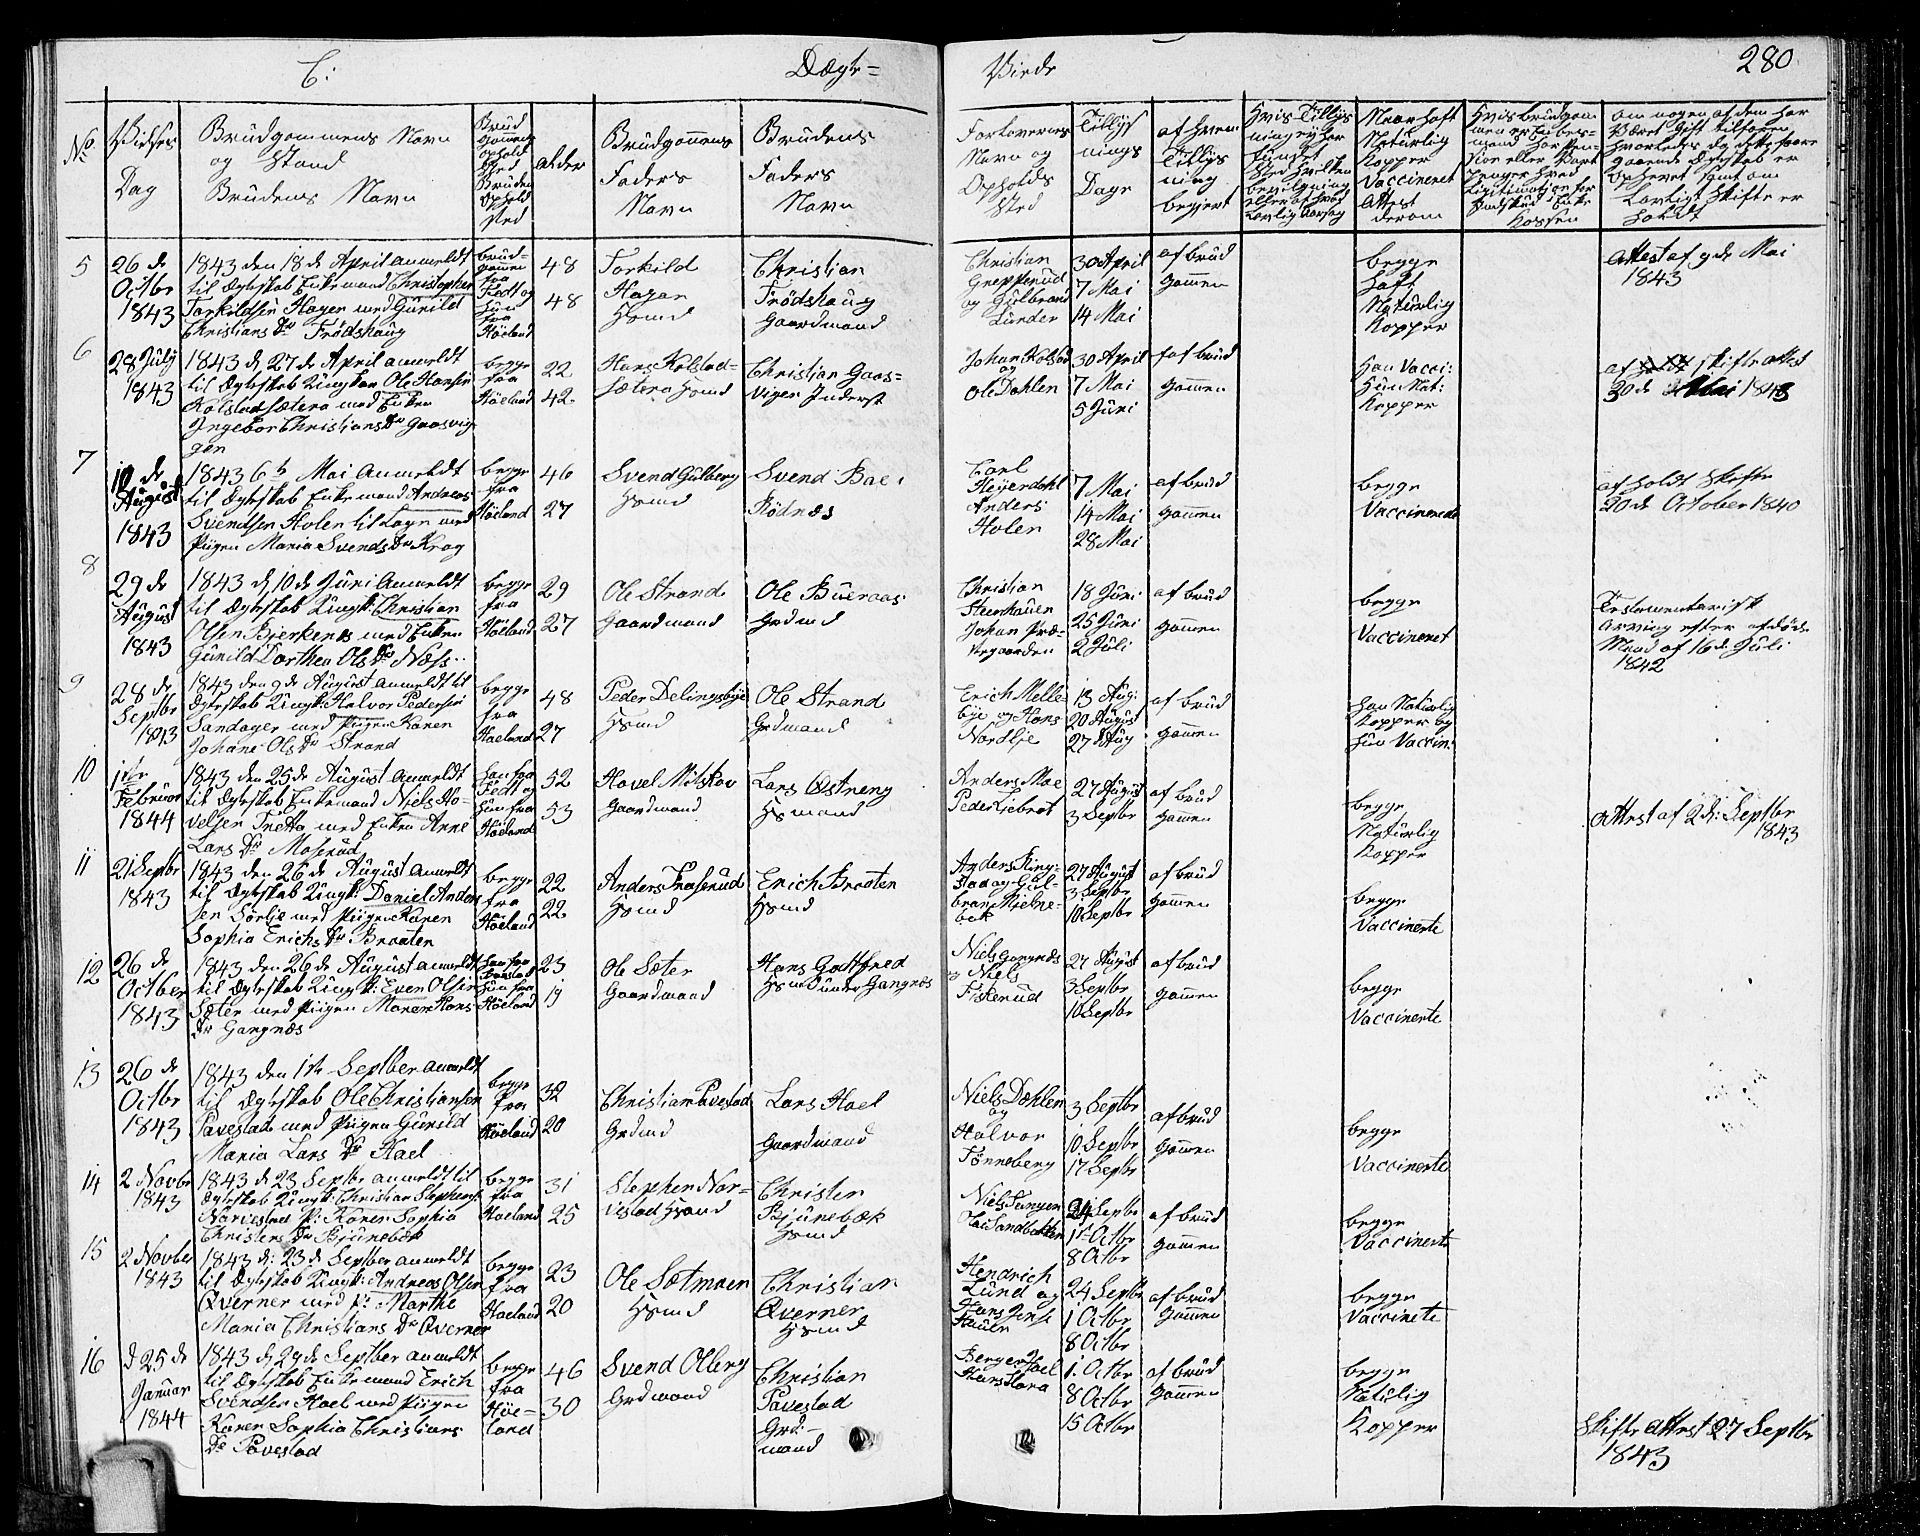 C:
Dægte=
Viede
280.
No
Vielses
Dag
Brudgommens Navn
og Stand
Brudens Navn
Brud
gomens
ophold
Sted
Bruden
Ophold
sted
alder
Brudgomens
Faders
Navn
Brudens
Faders
Navn
Forlovernes
Navn og
Opholds
Sted
Tillys
nings
Dage
af hvem
Tillys
ning
begjert
Hvis Tillys
ning ej har
fundet
Sted hvilken
bevilgning
eller af hvad
Lovlig Aarsag
Naar haft
Natürlig
Kopper
Vaccineret
Attest
derom
Hvis brudgom
men er Enkes
mand
om nogen af dem har
Været gift tilforn
hvorledes da dette foore
gaaende Ægteskab er
ophevet samt om
Lovligt Skifte er
holdt
5
26 de
Octbr
1843
1843 den 18 de April anmeldt
til Ægteskab Enkemand Christopher
Torkildsen Hagen med Gunild
Christians Dr Frödshaug
brud-
gomen
fra
Fedt og
hun
fra
Höeland
48
48
Torkild
Hagen
Hsmd
Christian
Frödshaug
Gaardmand
Christian
Grepperud
og Gulbrand
Lunder
30 April
7 Mai
14 Mai
af brud
gomen
begge
haft
Naturlig
Kopper
Attest af 9 de Mai
1843
6
28 July
1843
1843 d. 27 de April anmeldt
til Ægteskab Ungkar Ole Hansen
Kolstadsætera med Enken
Ingebor Christians Dr Gaasvig
gen
begge
fra
Höeland
22
42
Hans Kolstad-
sætera Hsmd
Christian Gaas-
vigen Inderst
Johan Kolstad
og
Ole Dahlen
30 April
7 Mai
5 Juni
af brud
gomen
han Vacci:
hun Nat:
Kopper
af Skifte attest
30 de Mai 1843
7
10 de
August
1843
1843 6 te Mai anmeldt
til Ægteskab Enkemand Andreas
Svendsen Holen til Lage med
Pigen Maria Svends Dr Krog
begge
fra
Höeland
46
27
Svend Gulberg
Hsmd
Svend Bae
Rödnæs
Carl
Heyerdahl
Anders
Holen
7 Mai
14 Mai
28 Mai
af brud
gomen
begge
Vaccinerede
afholdt Skifte
30 de October 1840
8
29 de
August
1843
1843 d. 10 de Juni Anmeldt
til Ægteskab Ungk: Christian
Olsen Bjerkenes med Enken
Gunild Dorthea Ols Dr Næss
begge
fra
Höeland
29
27
Ole Strand
Gaardmand
Ole Bueraas
Grdmd
Christian
Steenhauer
Johan Præ-
stegaarden
18 Juni
25 Juni
2 Juli
af brud
gomen
begge
Vaccineret
Testamentarisk
Arving efter afdöde
Mand af 16 d. Juli
1842
9
28 de
Septbr
1843
1843 den 9 de August anmeldt til
Ægteskab Ungk: Halvor Pedersen
Sandager med Pigen Karen
Johane Ols Dr Strand
begge
fra
Höeland
48
27
Peder Delingsbye
Hsmd
Ole Strand
Grdmand
Erich Melle
bye og Hans
Nordbye
13 Aug:
20 August
27 Aug
af brud
gomen
han Naturlig
Kopper og
hun Vaccin:
10
1ste
Februar
1844
1843 den 25 de August anmeldt
til Ægteskab Enkemand Niels Ho-
velsen Tretta med Enken Anne
Lars Dr Moserud
han fra
Fedt og
hun fra
Höeland
52
53
Hovel Milskov
Gaardmand
Lars Østreng
Hsmand
Anders Moe
Peder Liebret
27 August
3 Septbr
af brud
gomen
begge
Naturlig
Kopper
Attest af 2 d: Septbr
1843
11
21 Septbr
1843
1843 den 26 de August anmeldt
til Ægteskab Ungk: Daniel Ander
sen Sörlie med Pigen Karen
Sophia Erichs Dr Braaten
begge
fra
Höeland
22
22
Anders Fraserud
Hsmd
Erich Braaten
Hsmd
Anders Ring-
stad og Gul-
brand Kjelne-
bek
27 August
3 Septbr
10 Septbr
af brud
gomen
begge
Vaccinerte
12
26 de
October
1843
1843 den 26 de August anmeldt
til Ægteskab Ungk: Even Olsen
Sæter med Pigen Maren Hans
Dr Gangnæs
han fra
hun fra
Höeland
23
19
Ole Sæter
Gaardmand
Hans Godtfred
Hsmd under Gangnæs
Niels Gangnæs
og Niels
Fiskerud
27 August
3 Septbr
10 Septbr
af brud
gomen
begge
Vaccinerte
13
26 de
Octbr
1843
1843 den 1ste Septber anmeldt
til Ægteskab Ole Christiansen
Pavestad med Pigen Gunild
Maria Lars Dr Hael
begge
fra
Höeland
32
20
Christian Pavestad
Grdmd
Lars Hael
Gaardmand
Niels Dæhlen
og
Halvor
Tönneberg
3 Septbr
10 Septbr
17 Septbr
af brud
gomen
begge
Vaccinerte
14
2 Novbr
1843
1843 d. 23 Septbr anmeldt til
Ægteskab Ungk: Christian Stephens
Narvestad P: Karen Sophia
Christens Dr Bjönebæk
begge
fra
Höeland
31
25
Stephen Nar-
vestad Hsmand
Christen
Bjönebæk
Hsmd
Niels Tangen
Ole Sandbækken
24 Septbr
1st Octbr
8 Octbr
af brud
gomen
begge
Vaccinerte
15
2 Novber
1843
1843 d: 23 de Septber anmeldt
til Ægteskab Ungk: Andreas Olsen
Qverner med P: Marthe
Maria Christians Dr Qverner
begge
fra
Höeland
23
20
Ole Sætmoen
Hsmd
Christian
Qverner
Hsmd
Hendrich
Lund og
Hans Jens
Hauer
24 Septbr
1 Octbr
8 Octbr
af brud
gomen
begge
Vaccinerte
16
d 25 de
Januar
1844
1843 d. 29 de Septber anmeldt
til Ægteskab Enkemand Erich
Svendsen Hael med Pigen
Karen Sophia Christians
Dr Pavestad
begge
fra
Höe-
land
46
30
Svend Olberg
Grdmand
Christian
Pavestad
Grd:
mand
Berger Hael
Hans Hara
1. Octbr
8 Octbr
15 Octbr
af brud
gomen
begge
Natulig
Kopper
Skifte attest 27 Septbr
1843